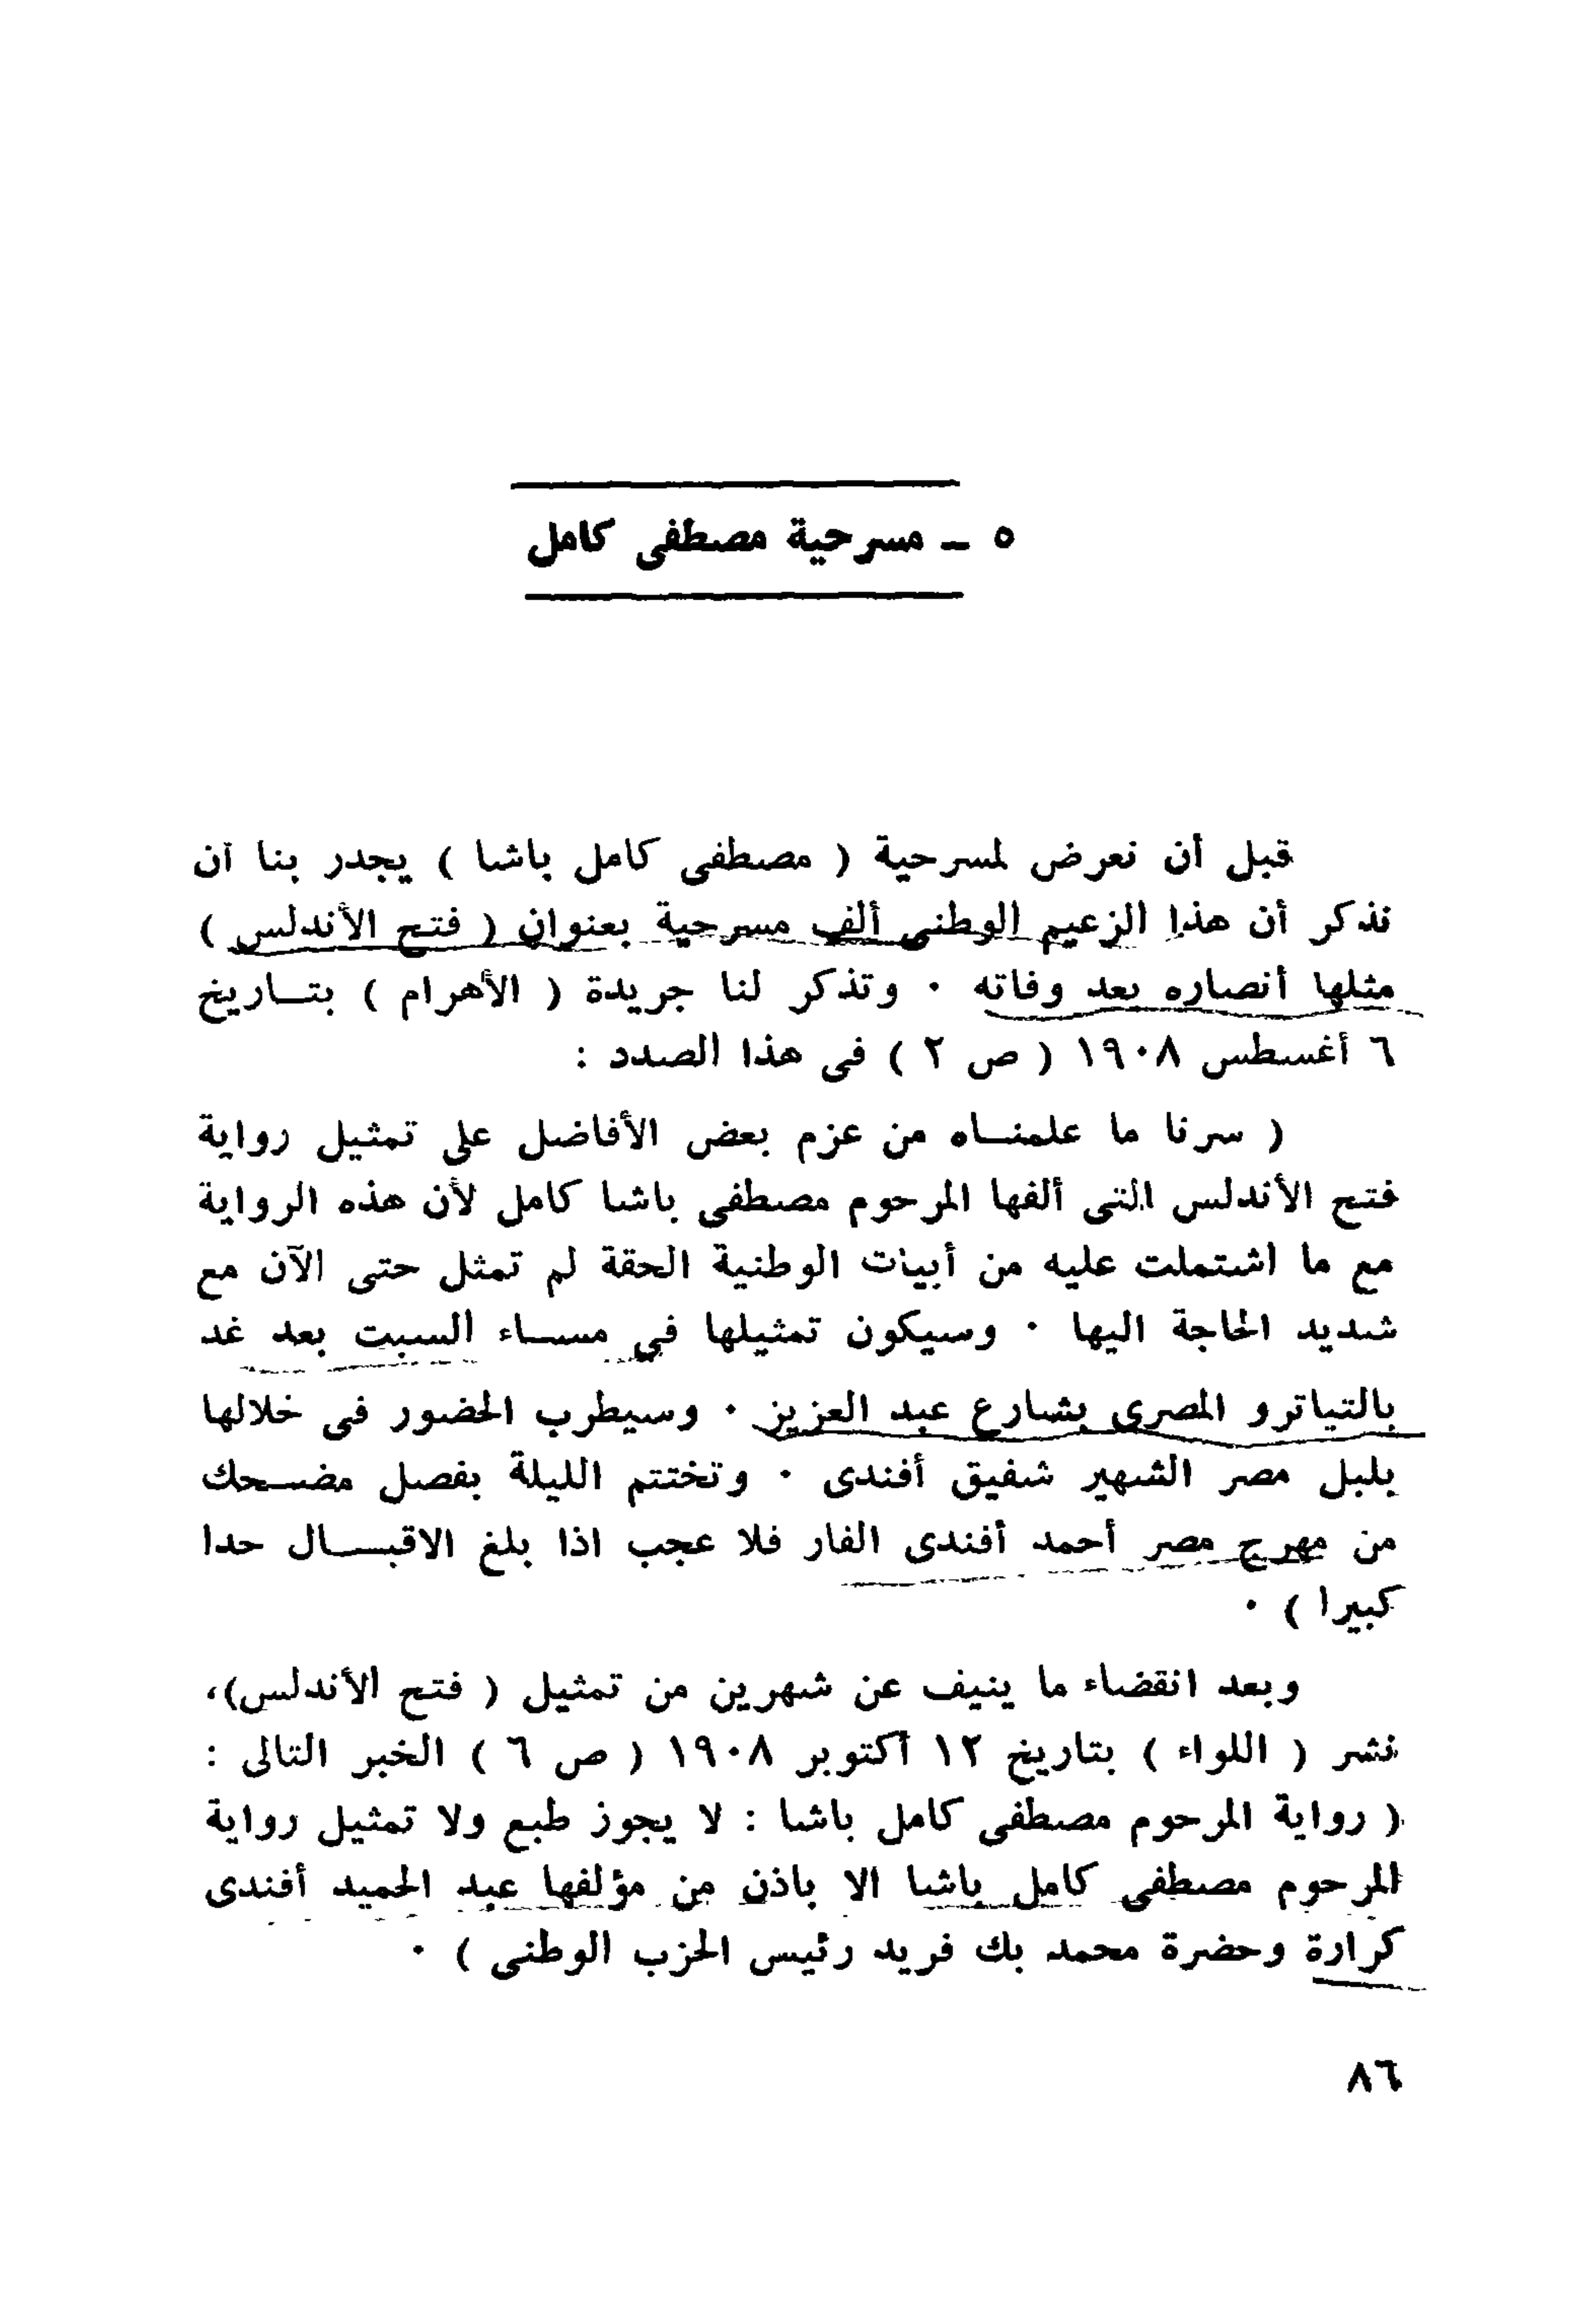 ٥ ــ مسرحية مصطفى كامل
قبل أن نعرض لمسرحية ( مصطفى كامل باشا ) يجدر بنا أن
نذكر أن هذا الزعيم الوطنى ألف مسرحية بعنوان ( فتح الأندلس )
مثلها أنصاره بعد وفاته ٠ وتذكر لنا جريدة ( الأهرام ) بتـــاريخ
٦ أغسطس ١٩٠٨ ( ص ٢ ) فى هذا الصدد :
( سرنا ما علمنـــاه من عزم بعض الأفاضل على تمثيل رواية
فتح الأندلس التى ألفها المرحوم مصطفى باشا كامل لأن هذه الرواية
مع ما اشتملت عليه من أبيات الوطنية الحقة لم تمثل حتى الآن مع
شديد الحاجة اليها ٠ وسيكون تمثيلها فى مســـاء السبت بعد غد
بالتياترو المصرى بشارع عبد العزيز ٠ وسيطرب الحضور فى خلالها
بلبل مصر الشهير شفيق أفندى ٠ وتختتم الليلة بفصل مضـــحك
من مهرج مصر أحمد أفندى الفار فلا عجب اذا بلغ الاقبـــال حدا
كبيرا ) ٠
وبعد انقضاء ما ينيف عن شهرين من تمثيل ( فتح الأندلس)،
نشر ( اللواء ) بتاريخ ١٢ أكتوبر ١٩٠٨ ( ص ٦ ) الخبر التالى :
( رواية المرحوم مصطفى كامل باشا : لا يجوز طبع ولا تمثيل رواية
المرحوم مصطفى كامل باشا الا باذن من مؤلفها عبد الحميد أفندى
كرارة وحضرة محمد بك فريد رئيس الحزب الوطنى ) ٠
٨٦